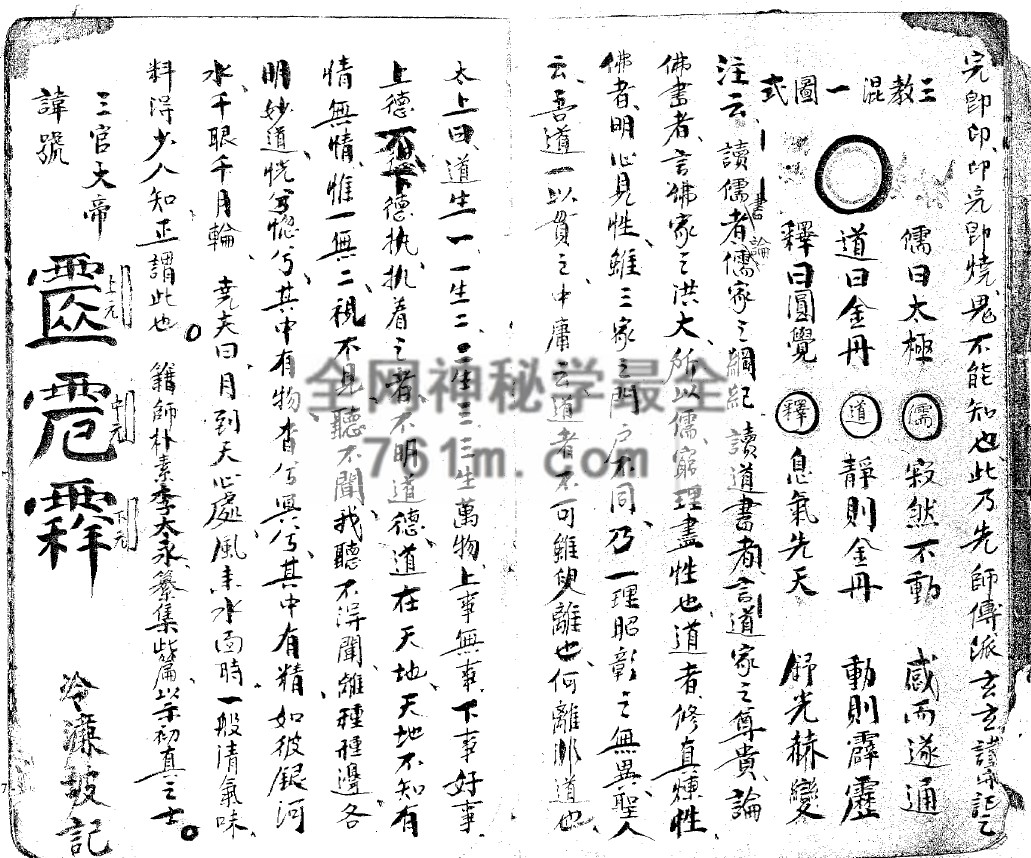 完即印、印完即燒鬼不能知也、此乃先師傳派玄玄謹識記之
三教混一圖式
儒曰太極 儒 寂然不動 感而遂通
道曰金丹 道 靜則金丹 動則霹靂
釋曰圓覺 釋 息氣先天 舒光赫變
注云、讀儒書者、儒家之綱紀、讀道書者、言道家之尊貴、論
佛書者、言佛家之洪大、所以儒、窮理盡性也、道者、修真煉性、
佛者、明心見性、雖三家之門戶不同、乃一理昭彰之無異、聖人
云、吾道一以貫之、中庸云道者不可須臾離也、可離非道也、
太上曰、道生一、一生二、二生三、三生萬物、上事無事、下事好事、
上德不德、下德執德、執着之者、不明道德、道在天地、天地不知、有
情無情、惟一無二、視不見、聽不聞、我聽不得聞、離種種邊、各
明妙道、恍兮惚兮、其中有物、杳兮冥兮、其中有精、如彼銀河
水、千眼千月輪、堯夫曰、月到天心處、風來水面時、一般清氣味、
料得少人知、正謂此也。 籍師朴素李太永纂集此篇、以示初真之士。
三官大帝
諱號
上元 中元 下元
冷濂坡記
全网神秘学最全
761m.com